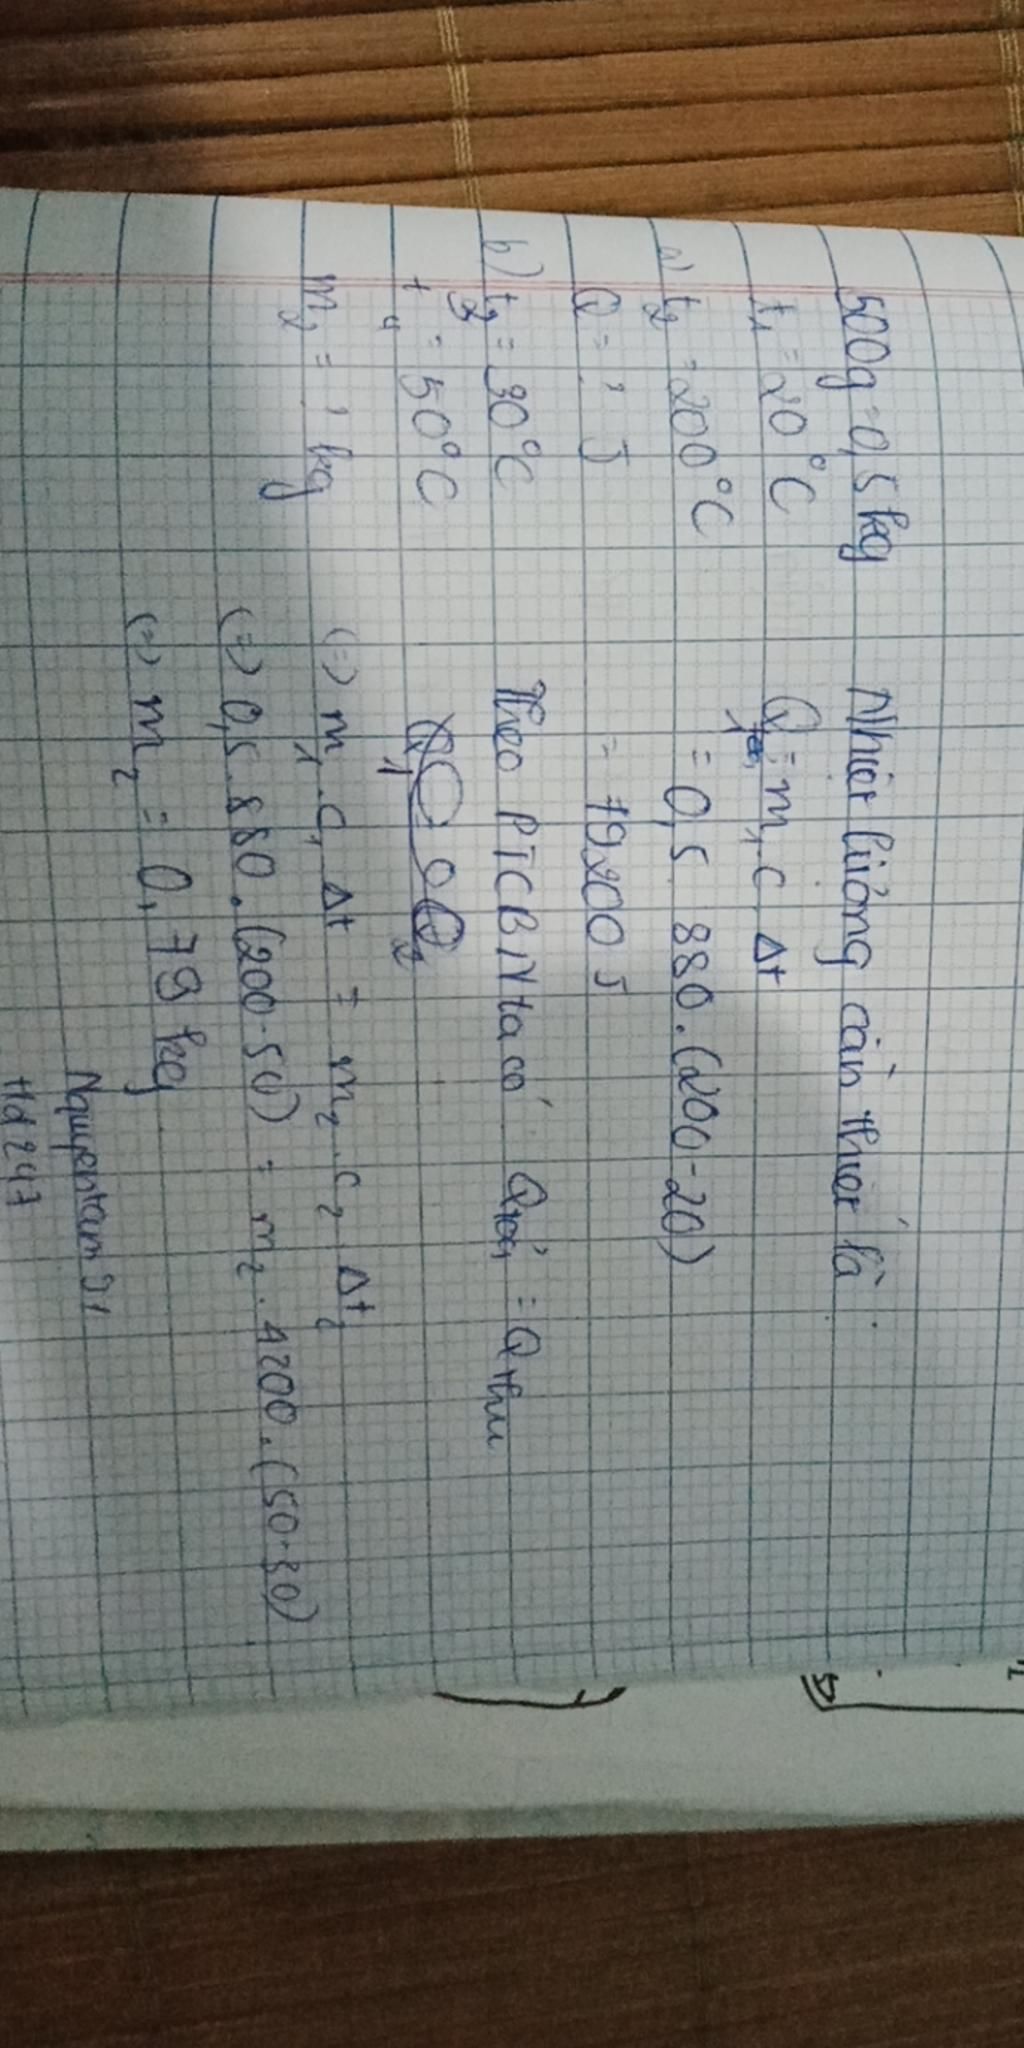 500g = 0,5 kg
t1 = 20°C
a) t2 = 200°C
Q = ? J
b) t3 = 30°C
t4 = 50°C
m2 = ? kg
Nhiệt lượng cần thiết là:
Q1 = m1. c, Δt
= 0,5 880. (200-20)
= 79200 J
Theo PTCBN ta có Qtoả = Qthu
(=) m1. c1 Δt = m2. c2 Δt2
(=) 0,5. 880. (200-50) = m2. 4200. (50-30)
(=) m2 = 0,79 kg
Nguyentam
Hd247